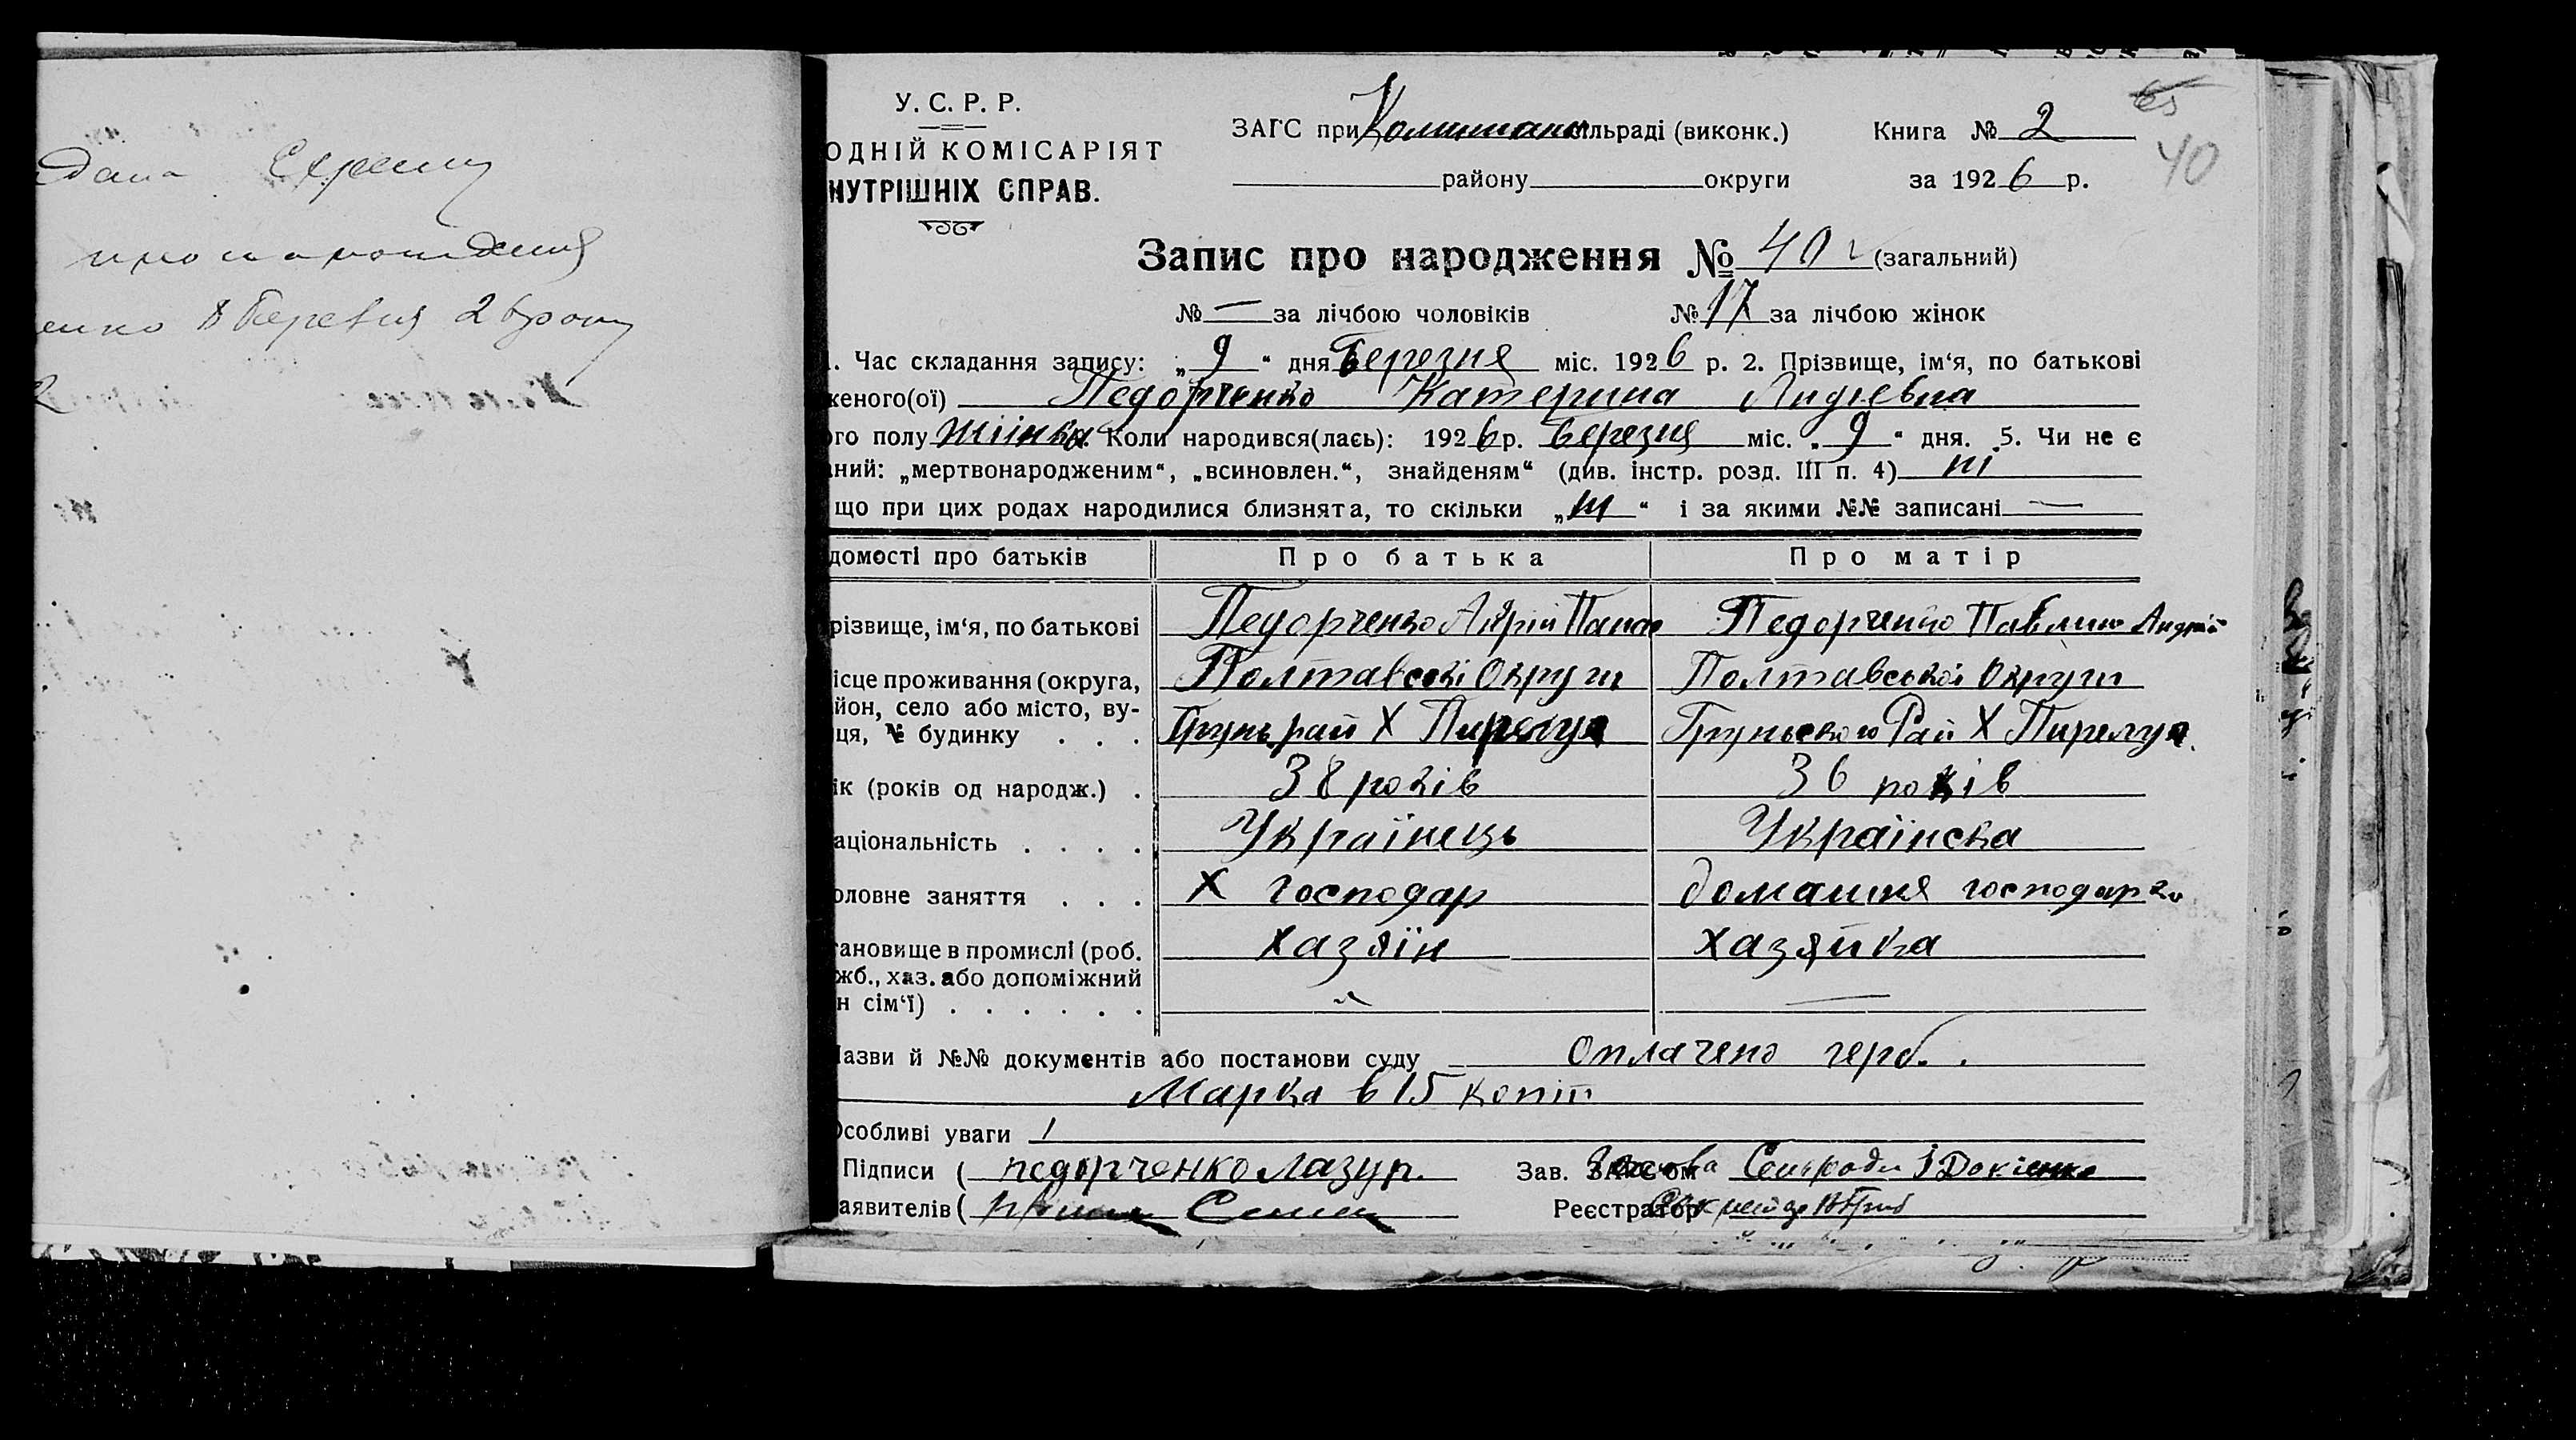 дана
8 Березня 26 року
У. С. Р. Р.
ОДНІЙ КОМІСАРІЯТ
НУТРІШНІХ СПРАВ.
ЗАГС при льраді (виконк.)
району округи
Книга № 2
за 1926 р.
65
40
Запис про народження № 40 (загальний)
№ — за лічбою чоловіків № 17 за лічбою жінок
. Час складання запису: „ 9 “ дня Березня міс. 1926 р. 2. Прізвище, ім‘я, по батькові
женого(ої) Педорченко Катерина Андіевна
ого полу Жіноч. Коли народився(лаєь): 1926 р. Березня міс. „ 9 “ дня. 5. Чи не є
аний: „мертвонародженим“, „всиновлен.“, знайденям“ (див. інстр. розд. III п. 4) ні
що при цих родах народилися близнята, то скільки „ ні “ і за якими №№ записані —
домості про батьків Про батька Про матір
різвище, ім‘я, по батькові Педорченко Панас Педорченко Павлина Андрій
ісце проживання (округа, Полтавскі Округи Полтавської Округи
йон, село або місто, ву-
ця, № будинку . . . Грунь рай Х Пирелуя Груньского Рай Х Пирелуя
ік (років од народж.) . 38 років 36 років
аціональність . . . . Українець Українска
оловне заняття . . . Х господар домашня господарка
тановище в промислі (роб. хазяїн хазяйка
жб., хаз. або допоміжний
н сім‘ї) . . . . . . —
Назви й №№ документів або постанови суду Оплачено герб.
Марка в 15 копій
Особливі уваги
Підписи ( педорченко лазур. Зав. ЗАГС‘ом Голова Сельради І Докіенко
аявителів ( Реєстратор